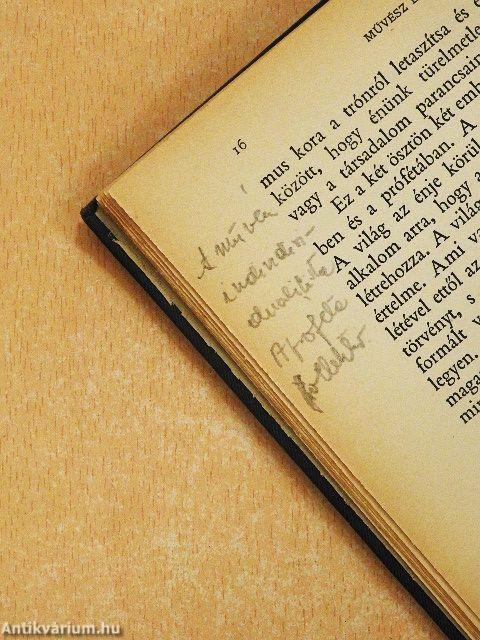 MŰVÉSZ
16
mus kora a trónról letaszítsa és
között, hogy énünk türelmetle
vagy a társadalom parancsain
Ez a két ösztön két emb
ben és a prófétában. A
A világ az énje körül
alkalom arra, hogy a
létrehozza. A világ
értelme. Ami va
létével ettől az
törvényt, s
formált v
legyen.
maga
min
A művész
individu-
alitása
A próféta
Antikvárium.hu